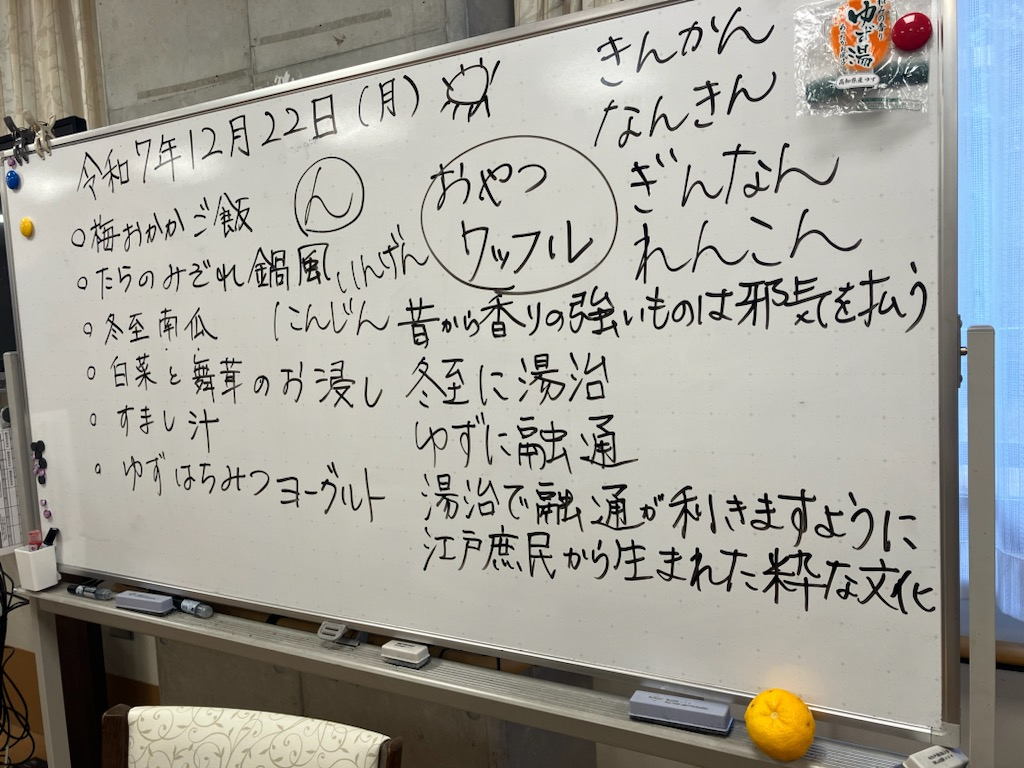 令和7年12月22日(月)
○梅おかかご飯
○たらのみぞれ鍋風
○冬至南瓜
○白菜と舞茸のお浸し
○すまし汁
○ゆずはちみつヨーグルト
ん
いんげん
にんじん
おやつ
ワッフル
きんかん
なんきん
ぎんなん
れんこん
昔から香りの強いものは邪気を払う
冬至に湯治
ゆずに融通
湯治で融通が利きますように
江戸庶民から生まれた粋な文化
ゆず湯
高知県産ゆず